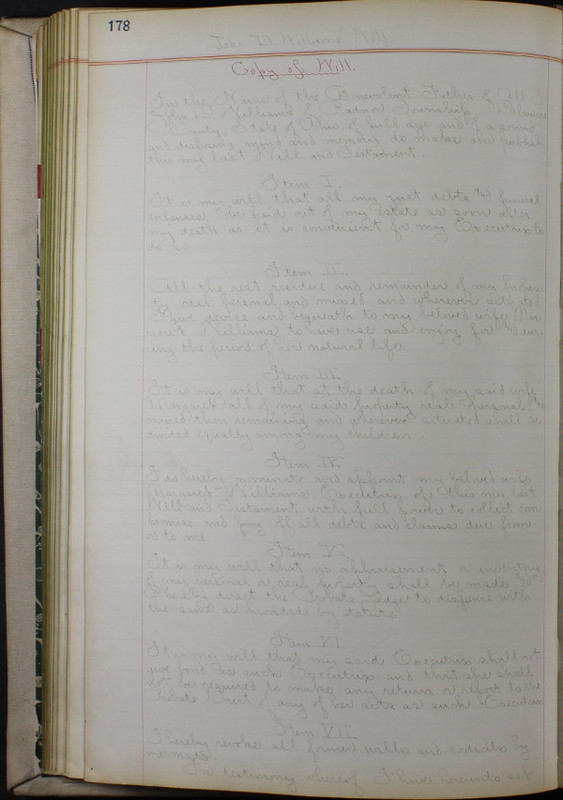 178
John D. Williams' Will
Copy of Will.
In the Name of the Benevolent Father of All I
John D. Williams of Radnor Township Delaware
County, State of Ohio, of full age and of a sound
and disposing mind and memory do make and publish
this my last Will and Testament.
Item I.
It is my will that all my just debts and funeral
expenses be paid out of my Estate as soon after
my death as it is convenient for my Executrix to
do so.
Item II.
All the rest residue and remainder of my proper-
ty real personal and mixed and wherever situated
I give devise and bequeath to my beloved wife Mar
garet Williams to have use and enjoy for and dur-
ing the period of her natural life.
Item III.
It is my will that at the death of my said wife
Margaret all of my said property real personal and
mixed then remaining and wherever situated shall be
divided equally among my children.
Item IV.
I do hereby nominate and appoint my beloved wife
Margaret Williams, Executrix of this my last
Will and Testament with full power to collect com
promise and pay off all debts and claims due from
or to me.
Item V.
It is my will that no appraisement or inventory
of my personal or real property shall be made and
I hereby direct the Probate Judge to dispense with
the same as provided by statute
Item VI
It is my will that my said Executrix shall not
give bond as such Executrix and that she shall
not be required to make any return or report to the
Probate Court of any of her acts as such Executrix
Item VII
I hereby revoke all former wills and codicils by
me made.
In testimony whereof, I have hereunto set